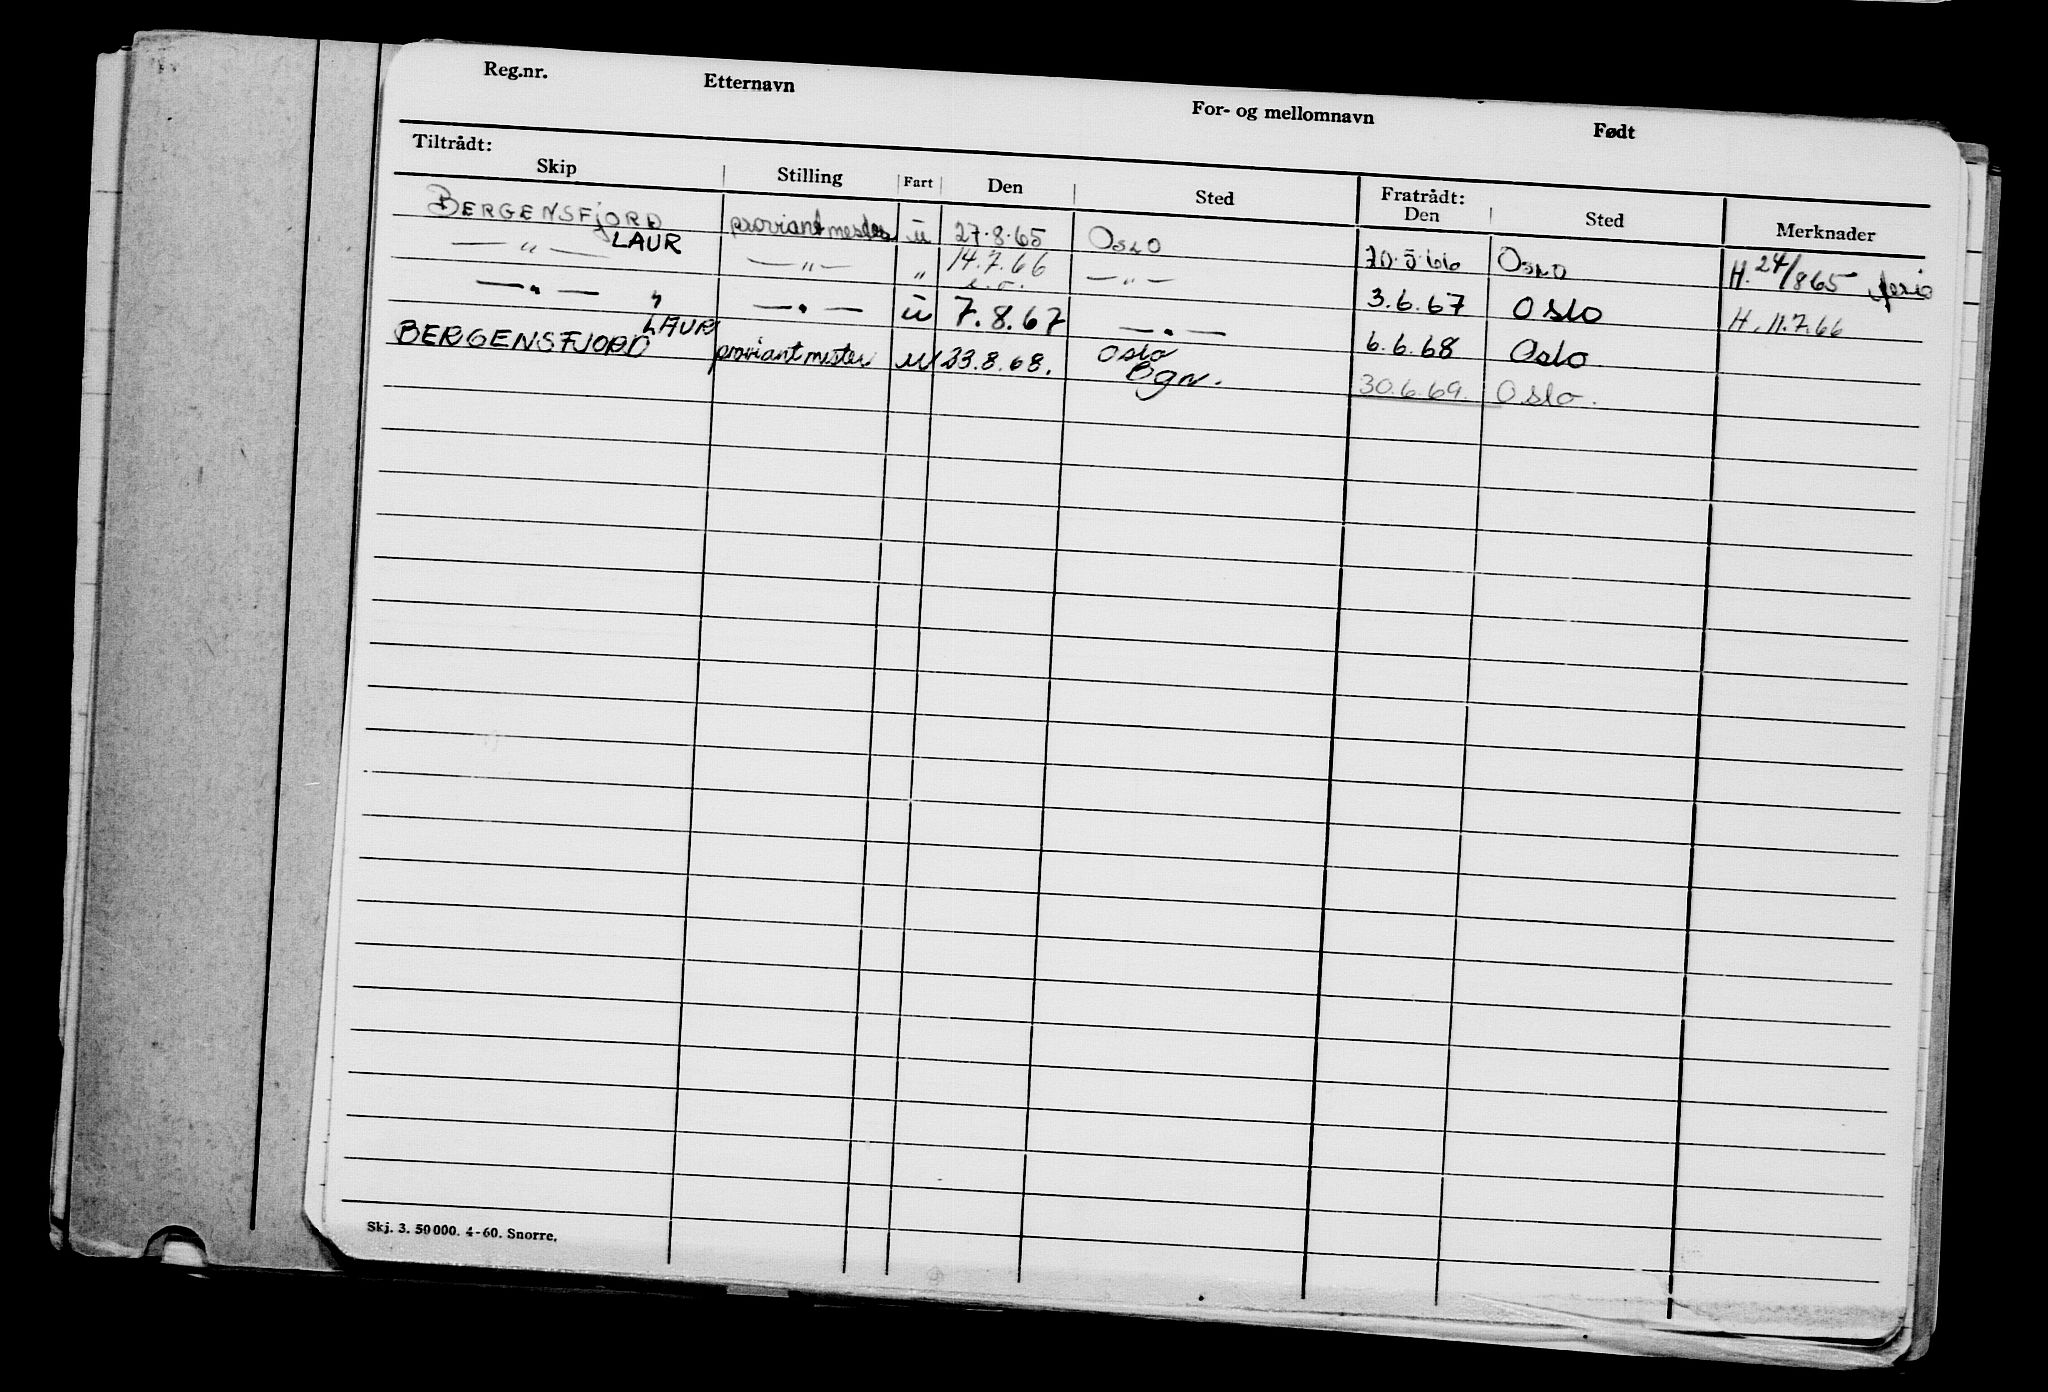 Reg.nr. Etternavn For- og mellomnavn Født
Tiltrådt: Fratrådt:
Skip Stilling Fart Den Sted Den Sted Merknader
BERGENSFJORD proviantmester u 27.8.65 Oslo 20.5.66 Oslo H. 24/865 ferie
— " — LAUR — " — " 14.7.66 — " — 3.6.67 Oslo H. 11.7.66
— " — " — " — u 7.8.67 — " — 6.6.68 Oslo
BERGENSFJORD LAUR proviantmester u 23.8.68. Oslo 30.6.69. Oslo.
Bgn.
Skj. 3. 50 000. 4-60. Snorre.